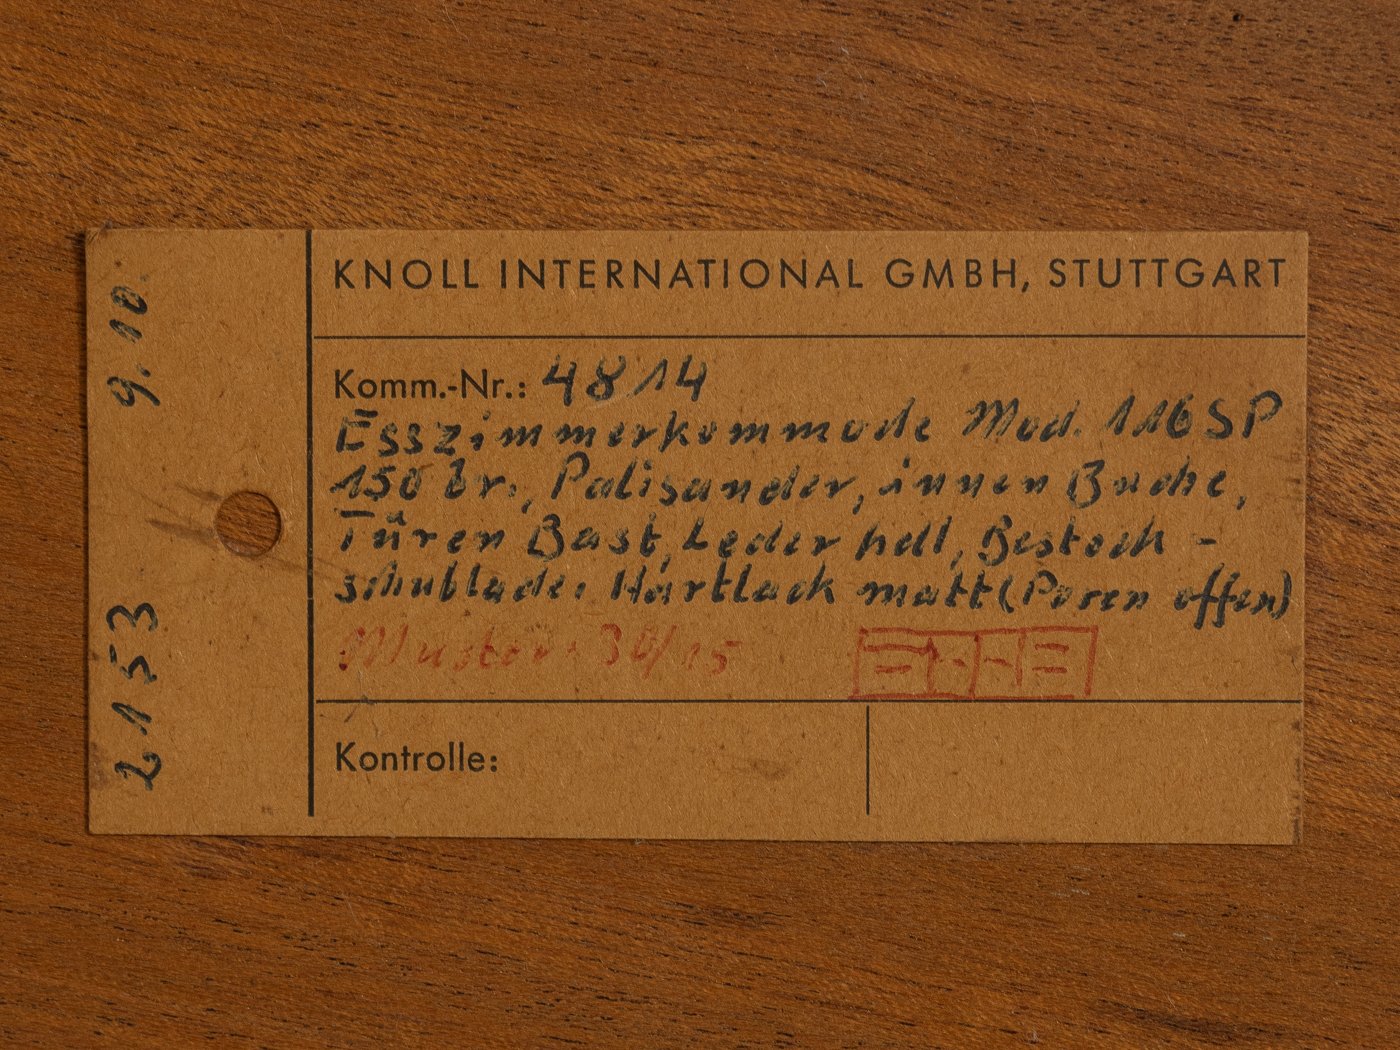 KNOLL INTERNATIONAL GMBH, STUTTGART
Komm.-Nr.: 4814
Esszimmerkommode Mod. 116 SP
150 br., Palisander, innen Buche,
Türen Bast, Leder hell, Besteck -
schublade. Hartlack matt (Poren offen)
Muster: 30/15
Kontrolle:
9.10.
2153